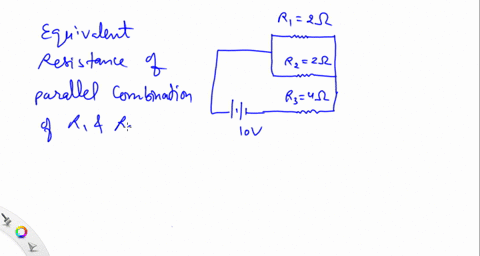 Equivalent
Resistance of
parallel Combination
of R₁ &
R₁=2Ω
R₂=2Ω
R₃=4Ω
10V